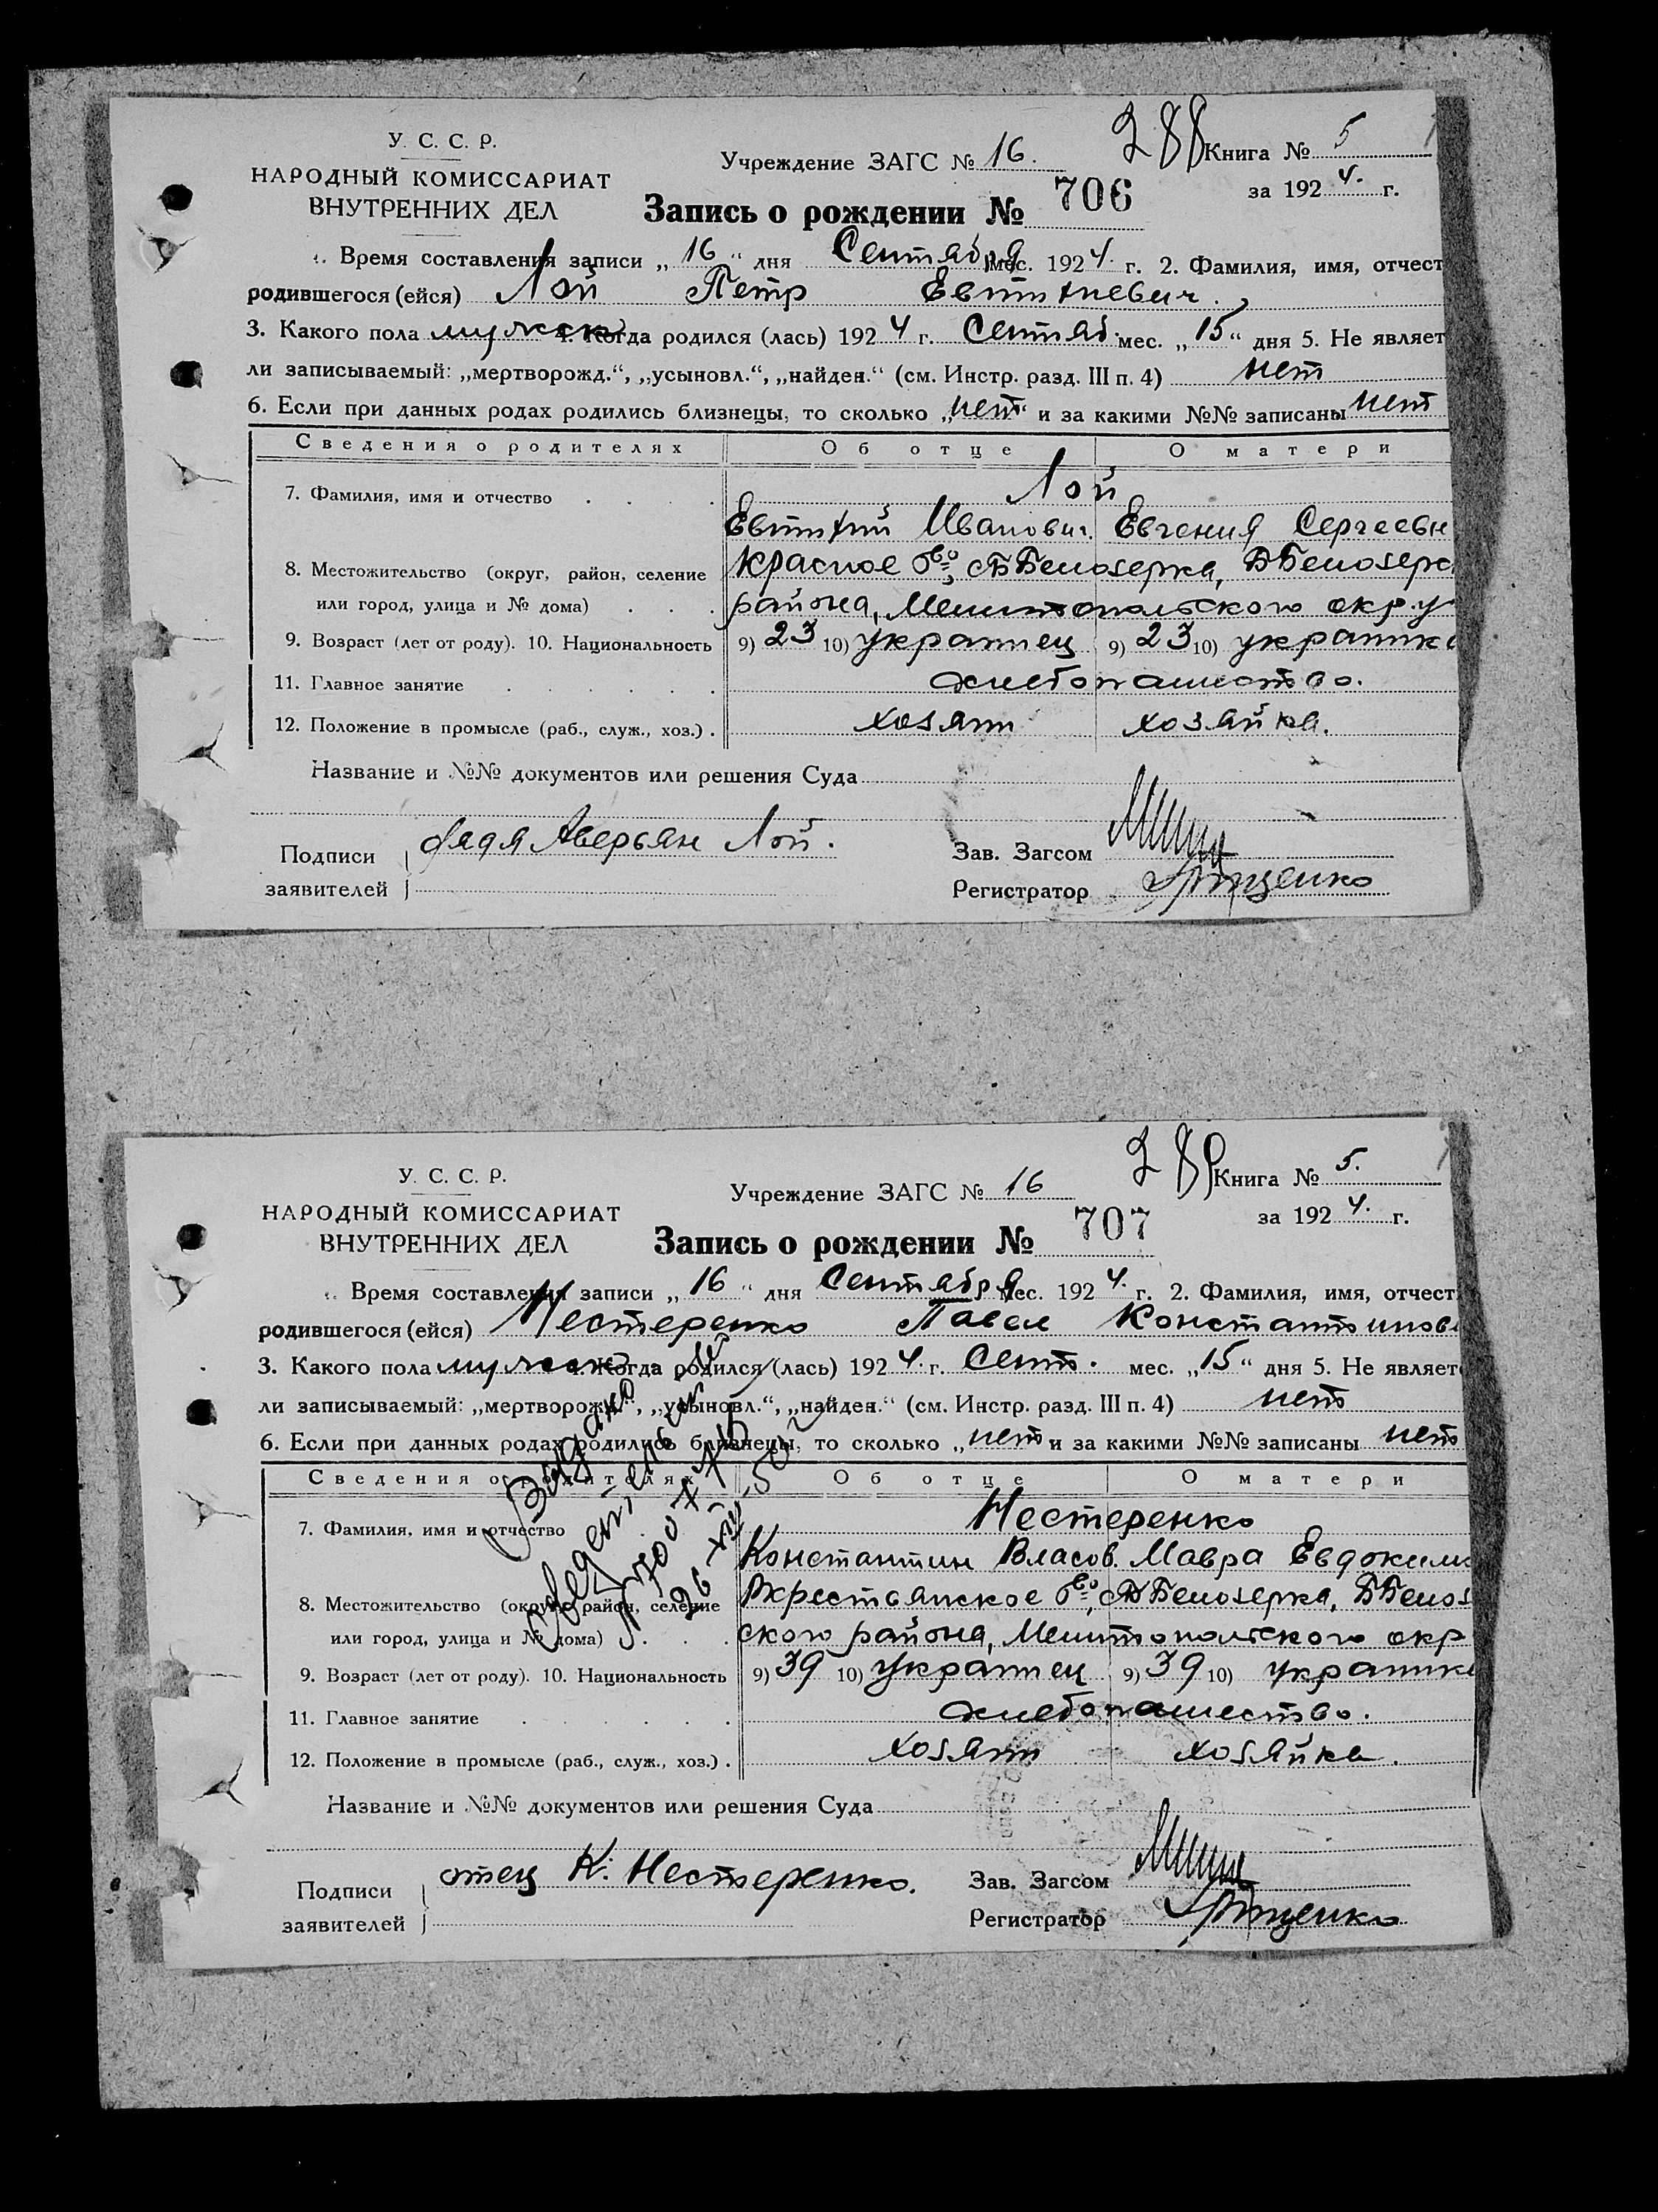 У. С. С. Р.
НАРОДНЫЙ КОМИССАРИАТ
ВНУТРЕННИХ ДЕЛ
Учреждение ЗАГС № 16.
288
Книга № 5
за 1924. г.
Запись о рождении № 706
Время составления записи „16“ дня Сентября мес. 1924. г. 2. Фамилия, имя, отчест
родившегося (ейся) Лой Петр Евтихиевич.
3. Какого пола мужск 4. Когда родился (лась) 1924 г. Сентяб. мес. „15“ дня 5. Не являет
ли записываемый: „мертворожд.“, „усыновл.“, „найден.“ (см. Инстр. разд. III п. 4) нет
6. Если при данных родах родились близнецы, то сколько „нет“ и за какими №№ записаны нет
Сведения о родителях Об отце О матери
7. Фамилия, имя и отчество . . . . Лой
Евтихий Иванович. Евгения Сергеевн
8. Местожительство (округ, район, селение Красное О-во, с ББелозерка, ББелозерс
или город, улица и № дома) . . . района, Мелитопольского окр.
9. Возраст (лет от роду). 10. Национальность 9) 23 10) украинец 9) 23 10) украинка
11. Главное занятие . . . . . . хлебопашество.
12. Положение в промысле (раб., служ., хоз.) . хозяин хозяйка.
Название и №№ документов или решения Суда
Подписи
заявителей
дядя Аверьян Лой.
Зав. Загсом
Регистратор
У. С. С. Р.
НАРОДНЫЙ КОМИССАРИАТ
ВНУТРЕННИХ ДЕЛ
Учреждение ЗАГС № 16
289
Книга № 5.
за 1924. г.
Запись о рождении № 707
Время составления записи „16“ дня Сентября мес. 1924. г. 2. Фамилия, имя, отчест
родившегося (ейся) Нестеренко Павел Константинов
3. Какого пола мужск 4. Когда родился (лась) 1924. г. Сент. мес. „15“ дня 5. Не являет
ли записываемый: „мертворожд.“, „усыновл.“, „найден.“ (см. Инстр. разд. III п. 4) нет
6. Если при данных родах родились близнецы, то сколько „нет и за какими №№ записаны нет
Сведения о родителях Об отце О матери
7. Фамилия, имя и отчество Нестеренко
Константин Власов. Мавра Евдоким
8. Местожительство (округ, район, селение Крестьянское О-во, с ББелозерка, ББелоз
или город, улица и № дома) . . . ского района, Мелитопольского окр
9. Возраст (лет от роду). 10. Национальность 9) 39 10) Украинец 9) 39 10) украинка
11. Главное занятие . . . . . . хлебопашество.
12. Положение в промысле (раб., служ., хоз.) . хозяин хозяйка.
Выдано
Название и №№ документов или решения Суда
Подписи
заявителей
отец К. Нестеренко.
Зав. Загсом
Регистратор